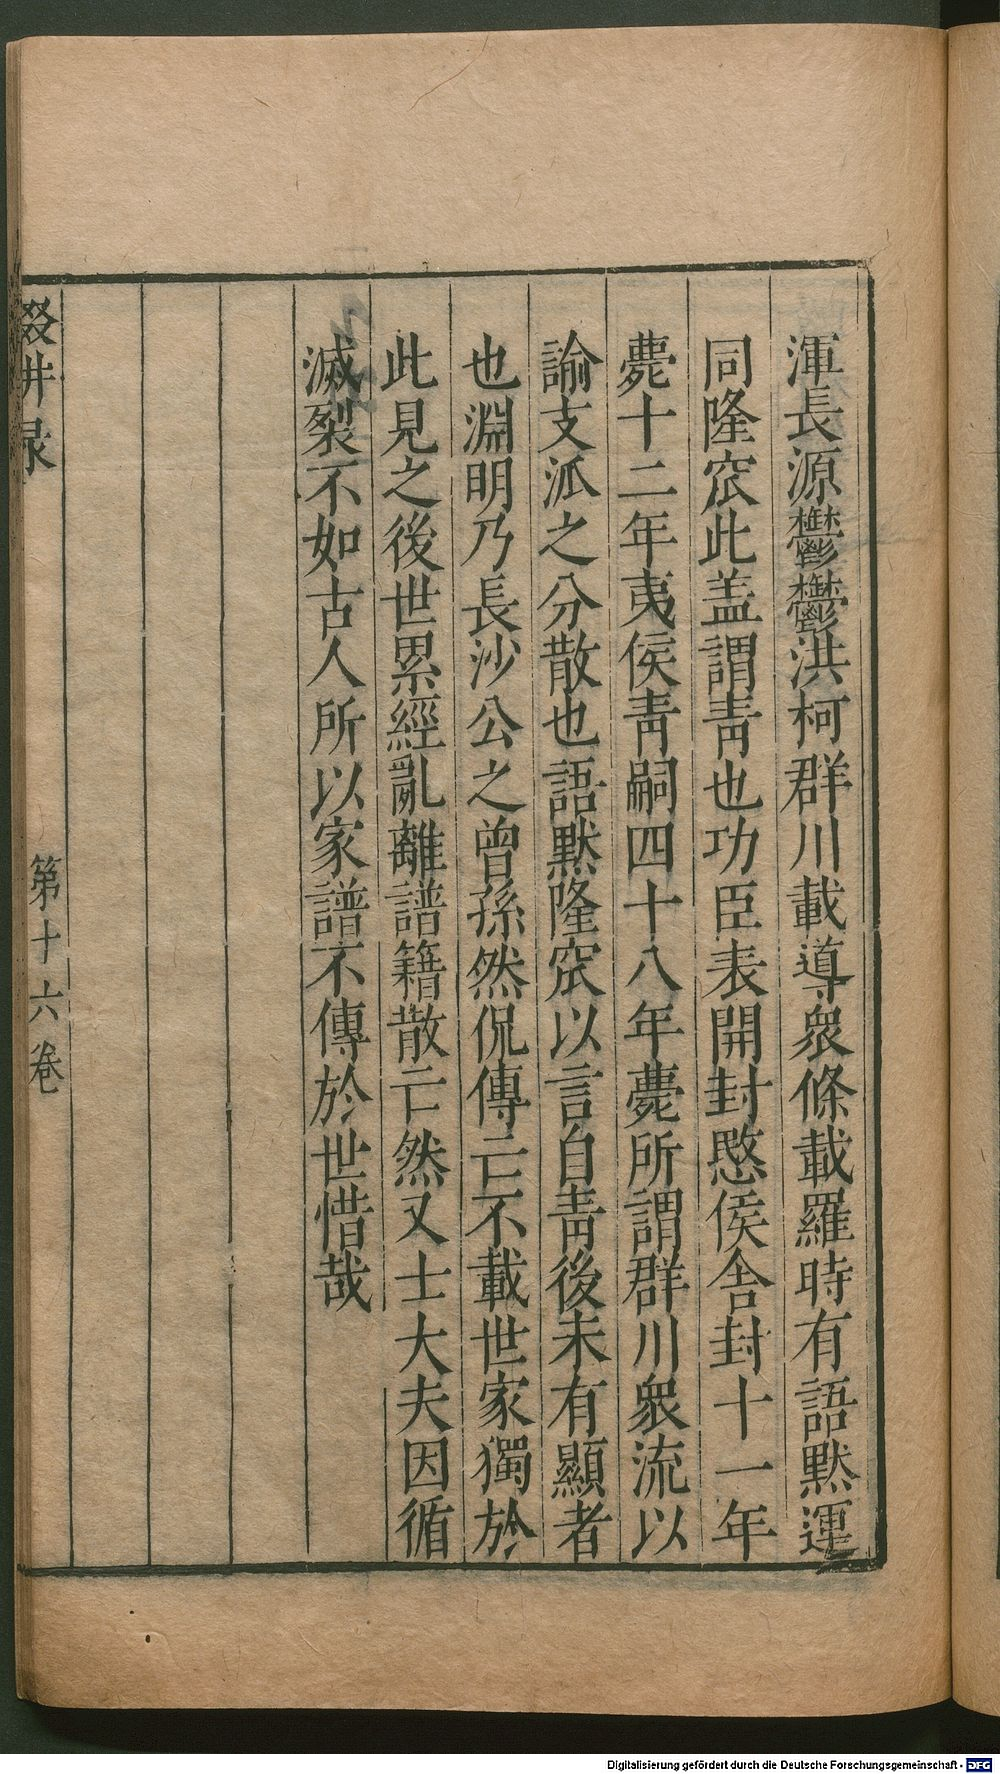 渾長源鬱鬱洪柯群川載導衆條載羅時有語默運
同隆窊此盖謂靑也功臣表開封愍侯舎封十一年
薨十二年夷侯靑嗣四十八年薨所謂群川衆流以
諭支派之分散也語默隆窊以言自靑後未有顯者
也淵明乃長沙公之曾孫然侃傳亡不載世家獨於
此見之後世累經亂離譜籍散亡然又士大夫因循
滅裂不如古人所以家譜不傳於世惜哉
第十六巻
Digitalisierung gefördert durch die Deutsche Forschungsgemeinschaft - DFG